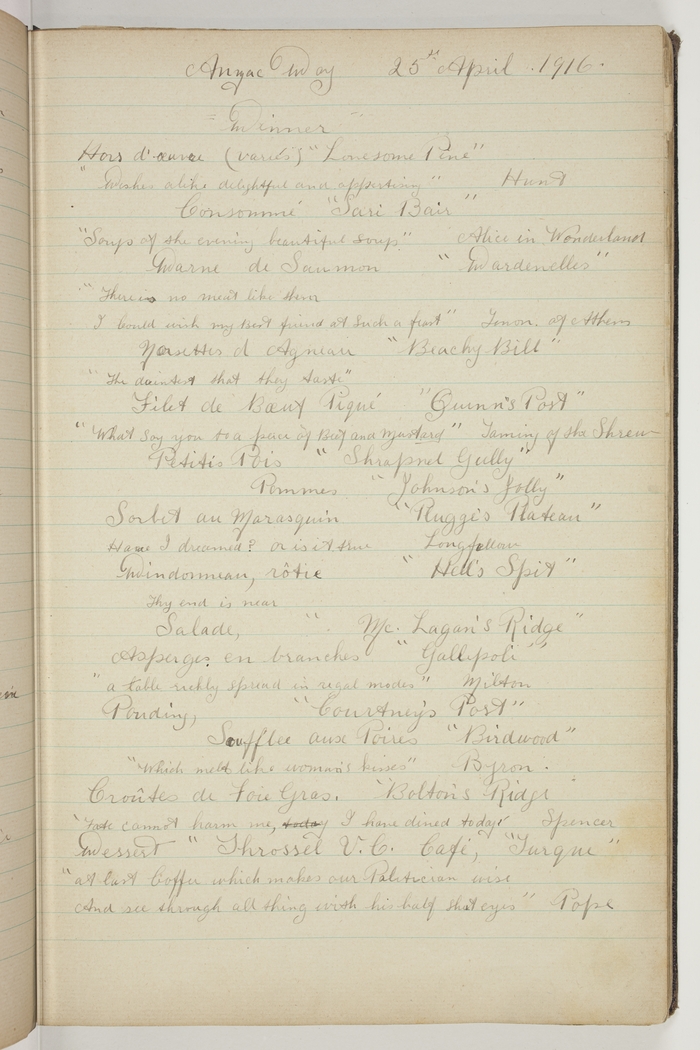 Anzac Day 25th April .1916.
"Dinner"
Hors d'œuvre (variés) "Lonesome Pine"
"Dishes alike delightful and appertising" Hunt
Consommé "Sari Bair"
"Soup of the evening beautiful soup" Alice in Wonderland
Darne de Saumon "Dardenelles"
"There is no meat like them
I could wish my best friend at such a feast" Timon. of Athens
Nosettes d Agneau "Beachy Bill"
"The daintest that they taste"
Filet de Bœuf Piqué "Quinn's Post"
"What say you to a peace of Beef and Mustard" Taming of the Shrew
Petitis Pois "Shrapnel Gully"
Pommes "Johnson's Jolly"
Sorbet au Marasquin "Rugge's Plateau"
Have I dreamed? or is it true Longfellow
Dindonneau, rôtie "Hell's Spit"
Thy end is near
Salade, " Mc. Lagan's Ridge"
Asperges en branches "Gallipoli"
"a table richly spread in regal modes" Milton
Pouding, "Courtney's Post"
Soufflee aux Poires "Birdwood"
"Which melt like woman's kisses" Byron.
Croûtes de Foie Gras. "Bolton's Ridge
"Fate cannot harm me, today I have dined today" Spencer
Dessert "Throssel V.C. Café, "Turque"
"at last Coffee which makes our Politician wise
And see through all thing with his half shut eyes" Pope